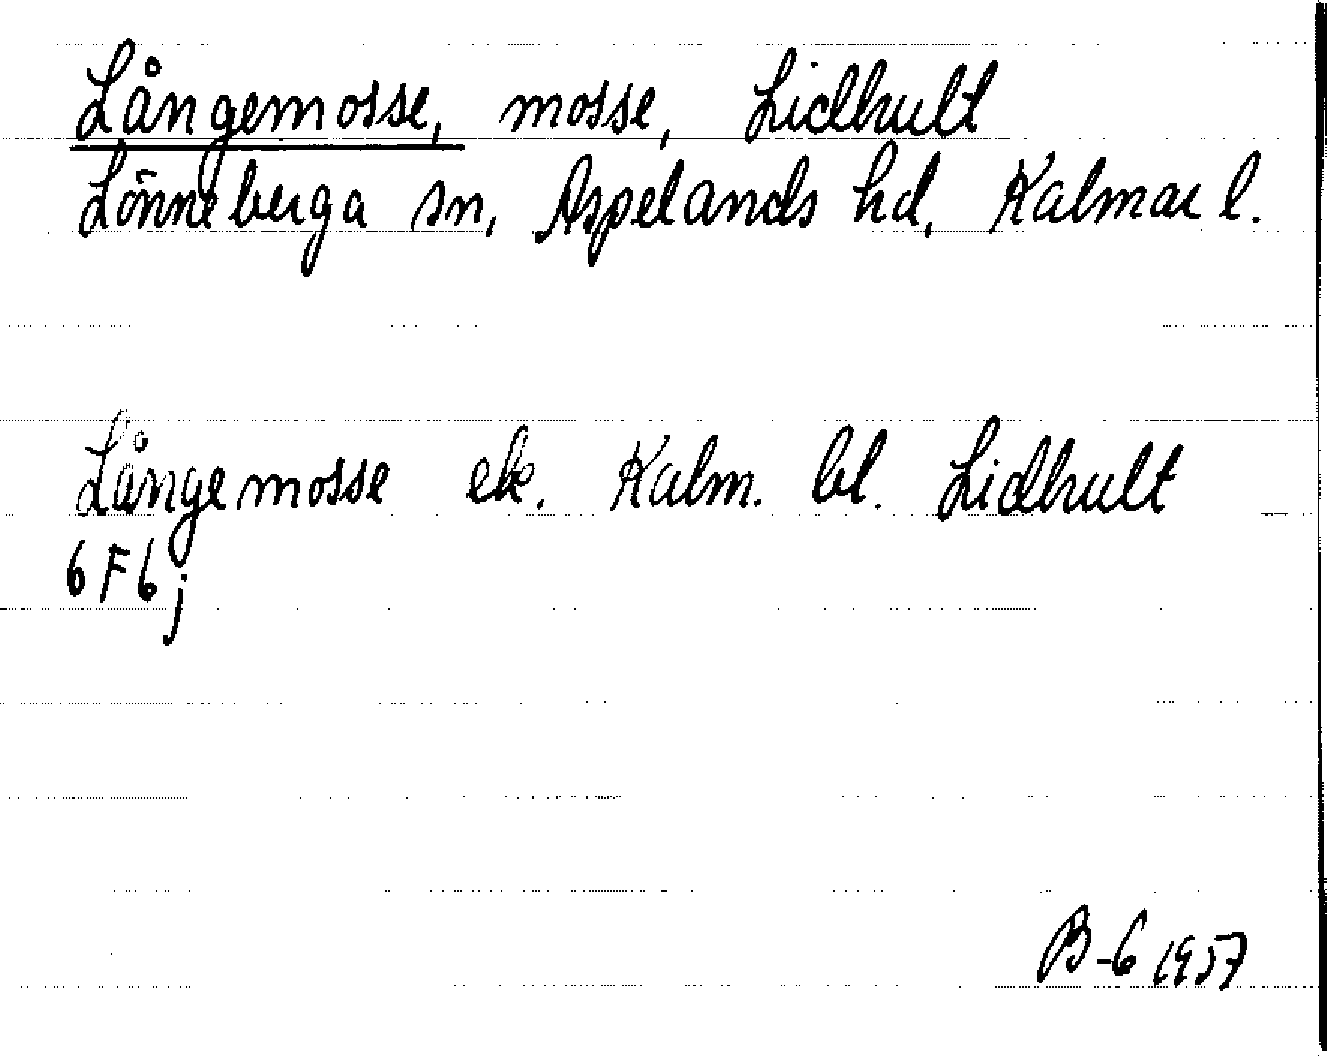 Långemosse, mosse, Lidhult
Lönneberga sn, Aspelands hd, Kalmar l.
Långemosse ek. Kalm. bl. Lidhult
6 F 6 j
B-G 1957